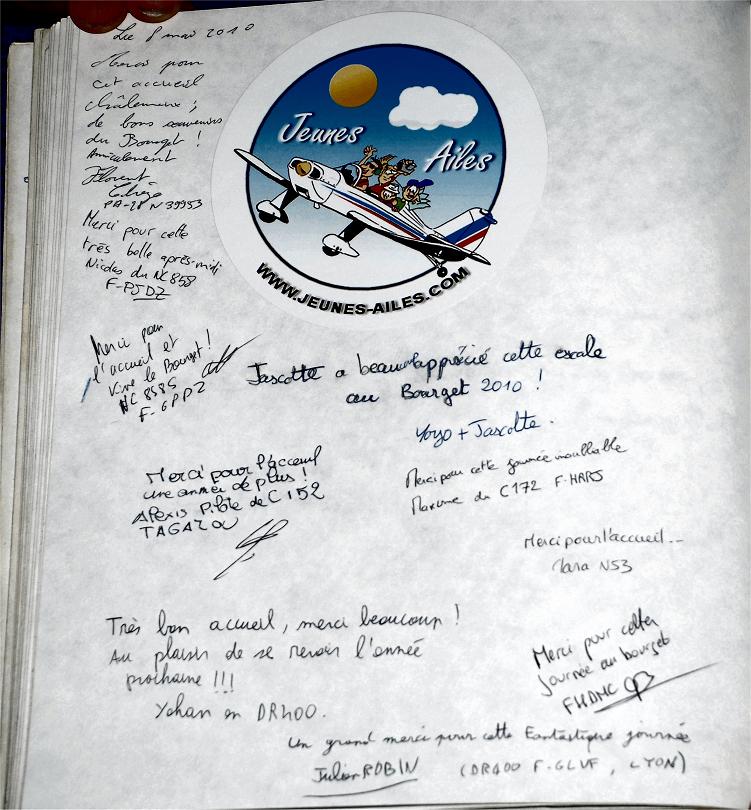 Le 8 mai 2010
Merci pour
cet accueil
chaleureux ;
de bons souvenirs
du Bourget !
Amicalement
Florent
PA-28 N39953
Merci pour cette
très belle après-midi
Nicolas du NC858
F-PJDZ
Jeunes
Ailes
WWW.JEUNES-AILES.COM
Merci pour
l'accueil et
Vive le Bourget !
NC 858S
F-GPPZ
Jascotte a beaucoup apprécié cette escale
au Bourget 2010 !
Yoyo + Jascotte.
Merci pour l'acceuil
une année de plus !
Alexis Pilote de C152
TAGAZOU
Merci pour cette journée inoubliable
Maxime du C172 F-HARS
Merci pour l'accueil...
Clara N53
Très bon accueil, merci beaucoup !
Au plaisir de se revoir l'année
prochaine !!!
Yohan en DR400.
Merci pour cette
journée au bourget
FHDMC
Un grand merci pour cette Fantastique journée
Julien ROBIN (DR400 F-GLVF, LYON)